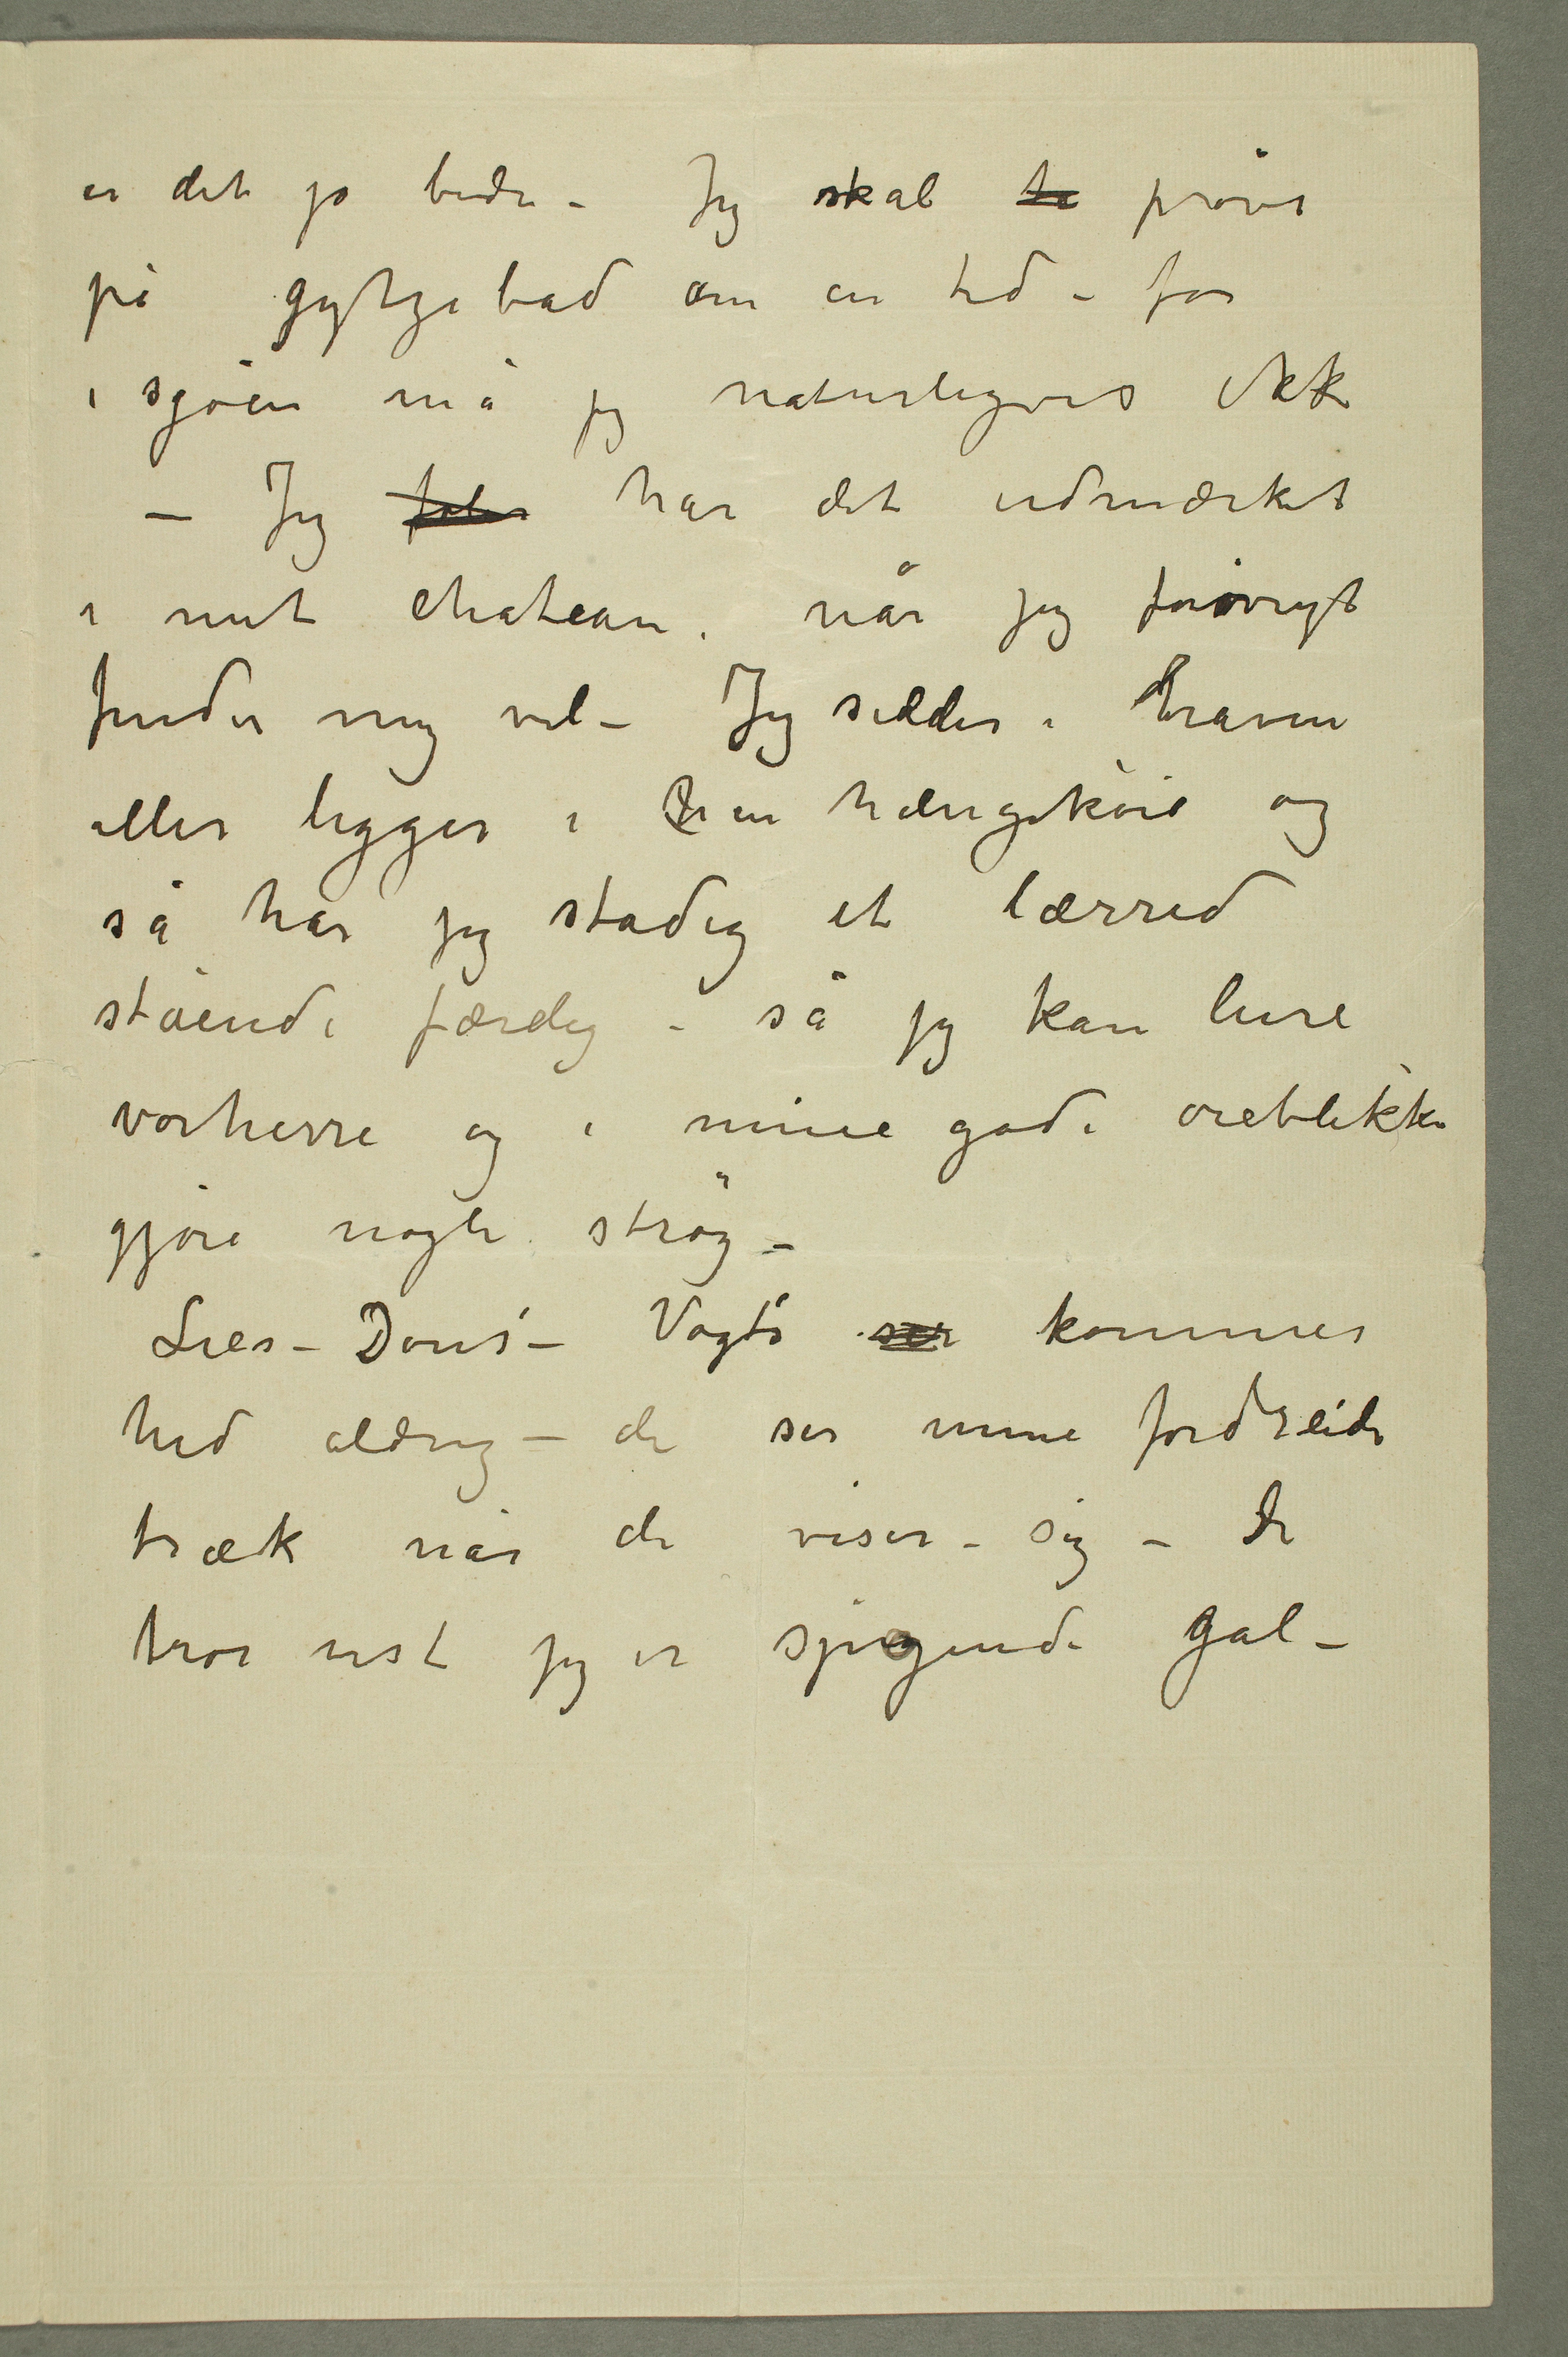 er det jo bedre – Jeg skal ta prøve
på gytjebad om en tid – for
i sjøen må jeg naturligvis ikke
– Jeg føler har det udmærket
i mit chateau. når jeg forøvrigt
finder mig vel – Jeg sidder i haven
eller ligger i en hængekøie og
så har jeg stadig et lærred
stående færdig – så jeg kan lure
vorherre og i mine gode øieblikke
gjøre nogle strøg –
Lies – Dons' – Vogts ser kommer
hid aldrig – de ser mine fordreide
træk når de viser – sig – De
tror vist jeg er spigende gal –